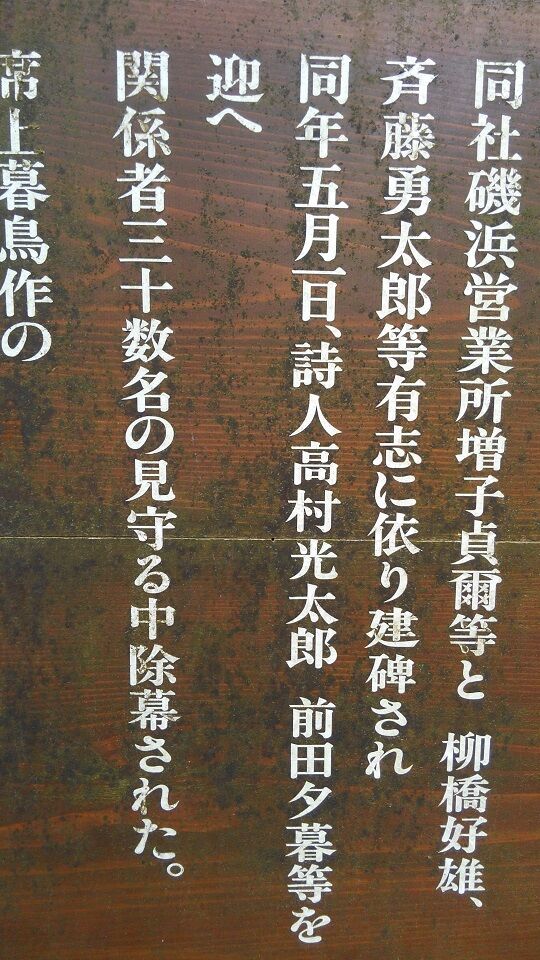 同社磯浜営業所増子貞爾等と 柳橋好雄、
斉藤勇太郎等有志に依り建碑され
同年五月一日、詩人高村光太郎 前田夕暮等を
迎へ
関係者三十数名の見守る中除幕された。
席上暮鳥作の